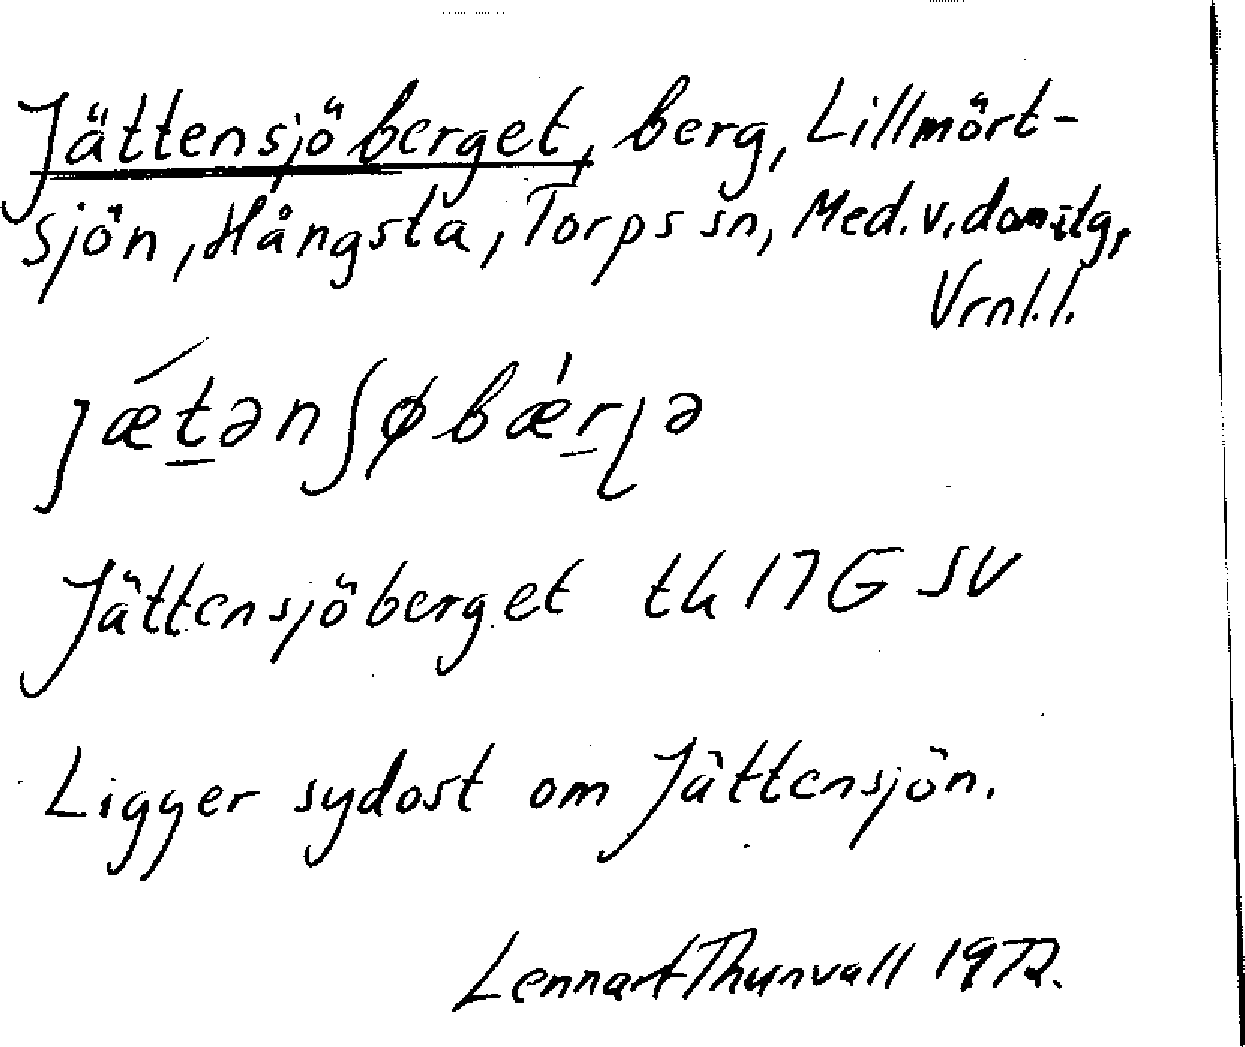 Jättensjöberget, berg, Lillmört-
sjön, Hångsta, Torps sn, Med. v. domstg,
Vrnl. l.
jǽtənʃøbǽrʅə
Jättensjöberget tk 17 G SV
Ligger sydost om Jättensjön.
Lennart Thunvall 1972.